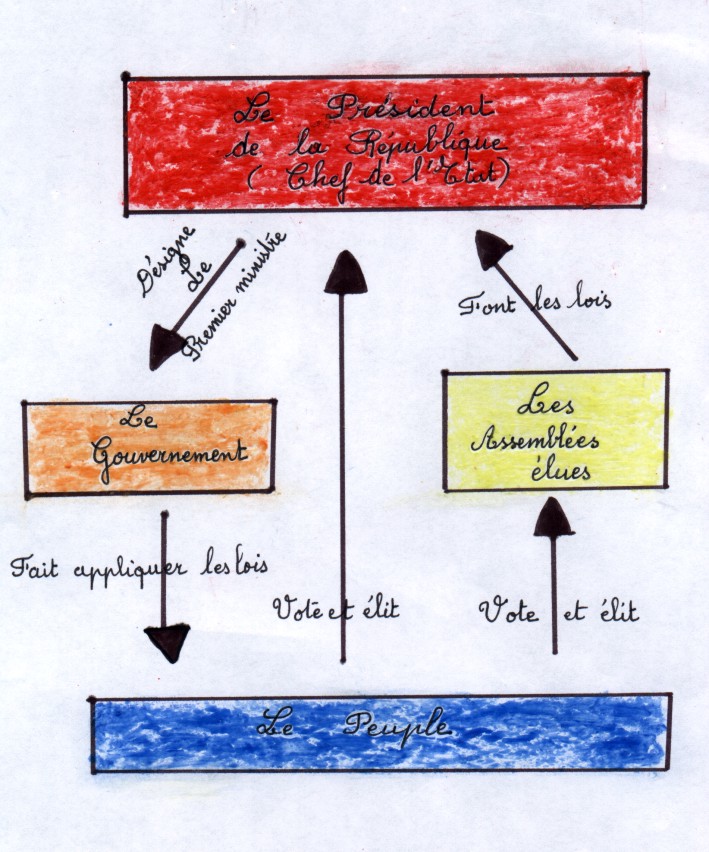 Le Président
de la République
( Chef de l'Etat)
Désigne
Le
Premier ministre
Font les lois
Le
Gouvernement
Les
Assemblées
élues
Fait appliquer les lois
Vote et élit
Vote et élit
Le Peuple